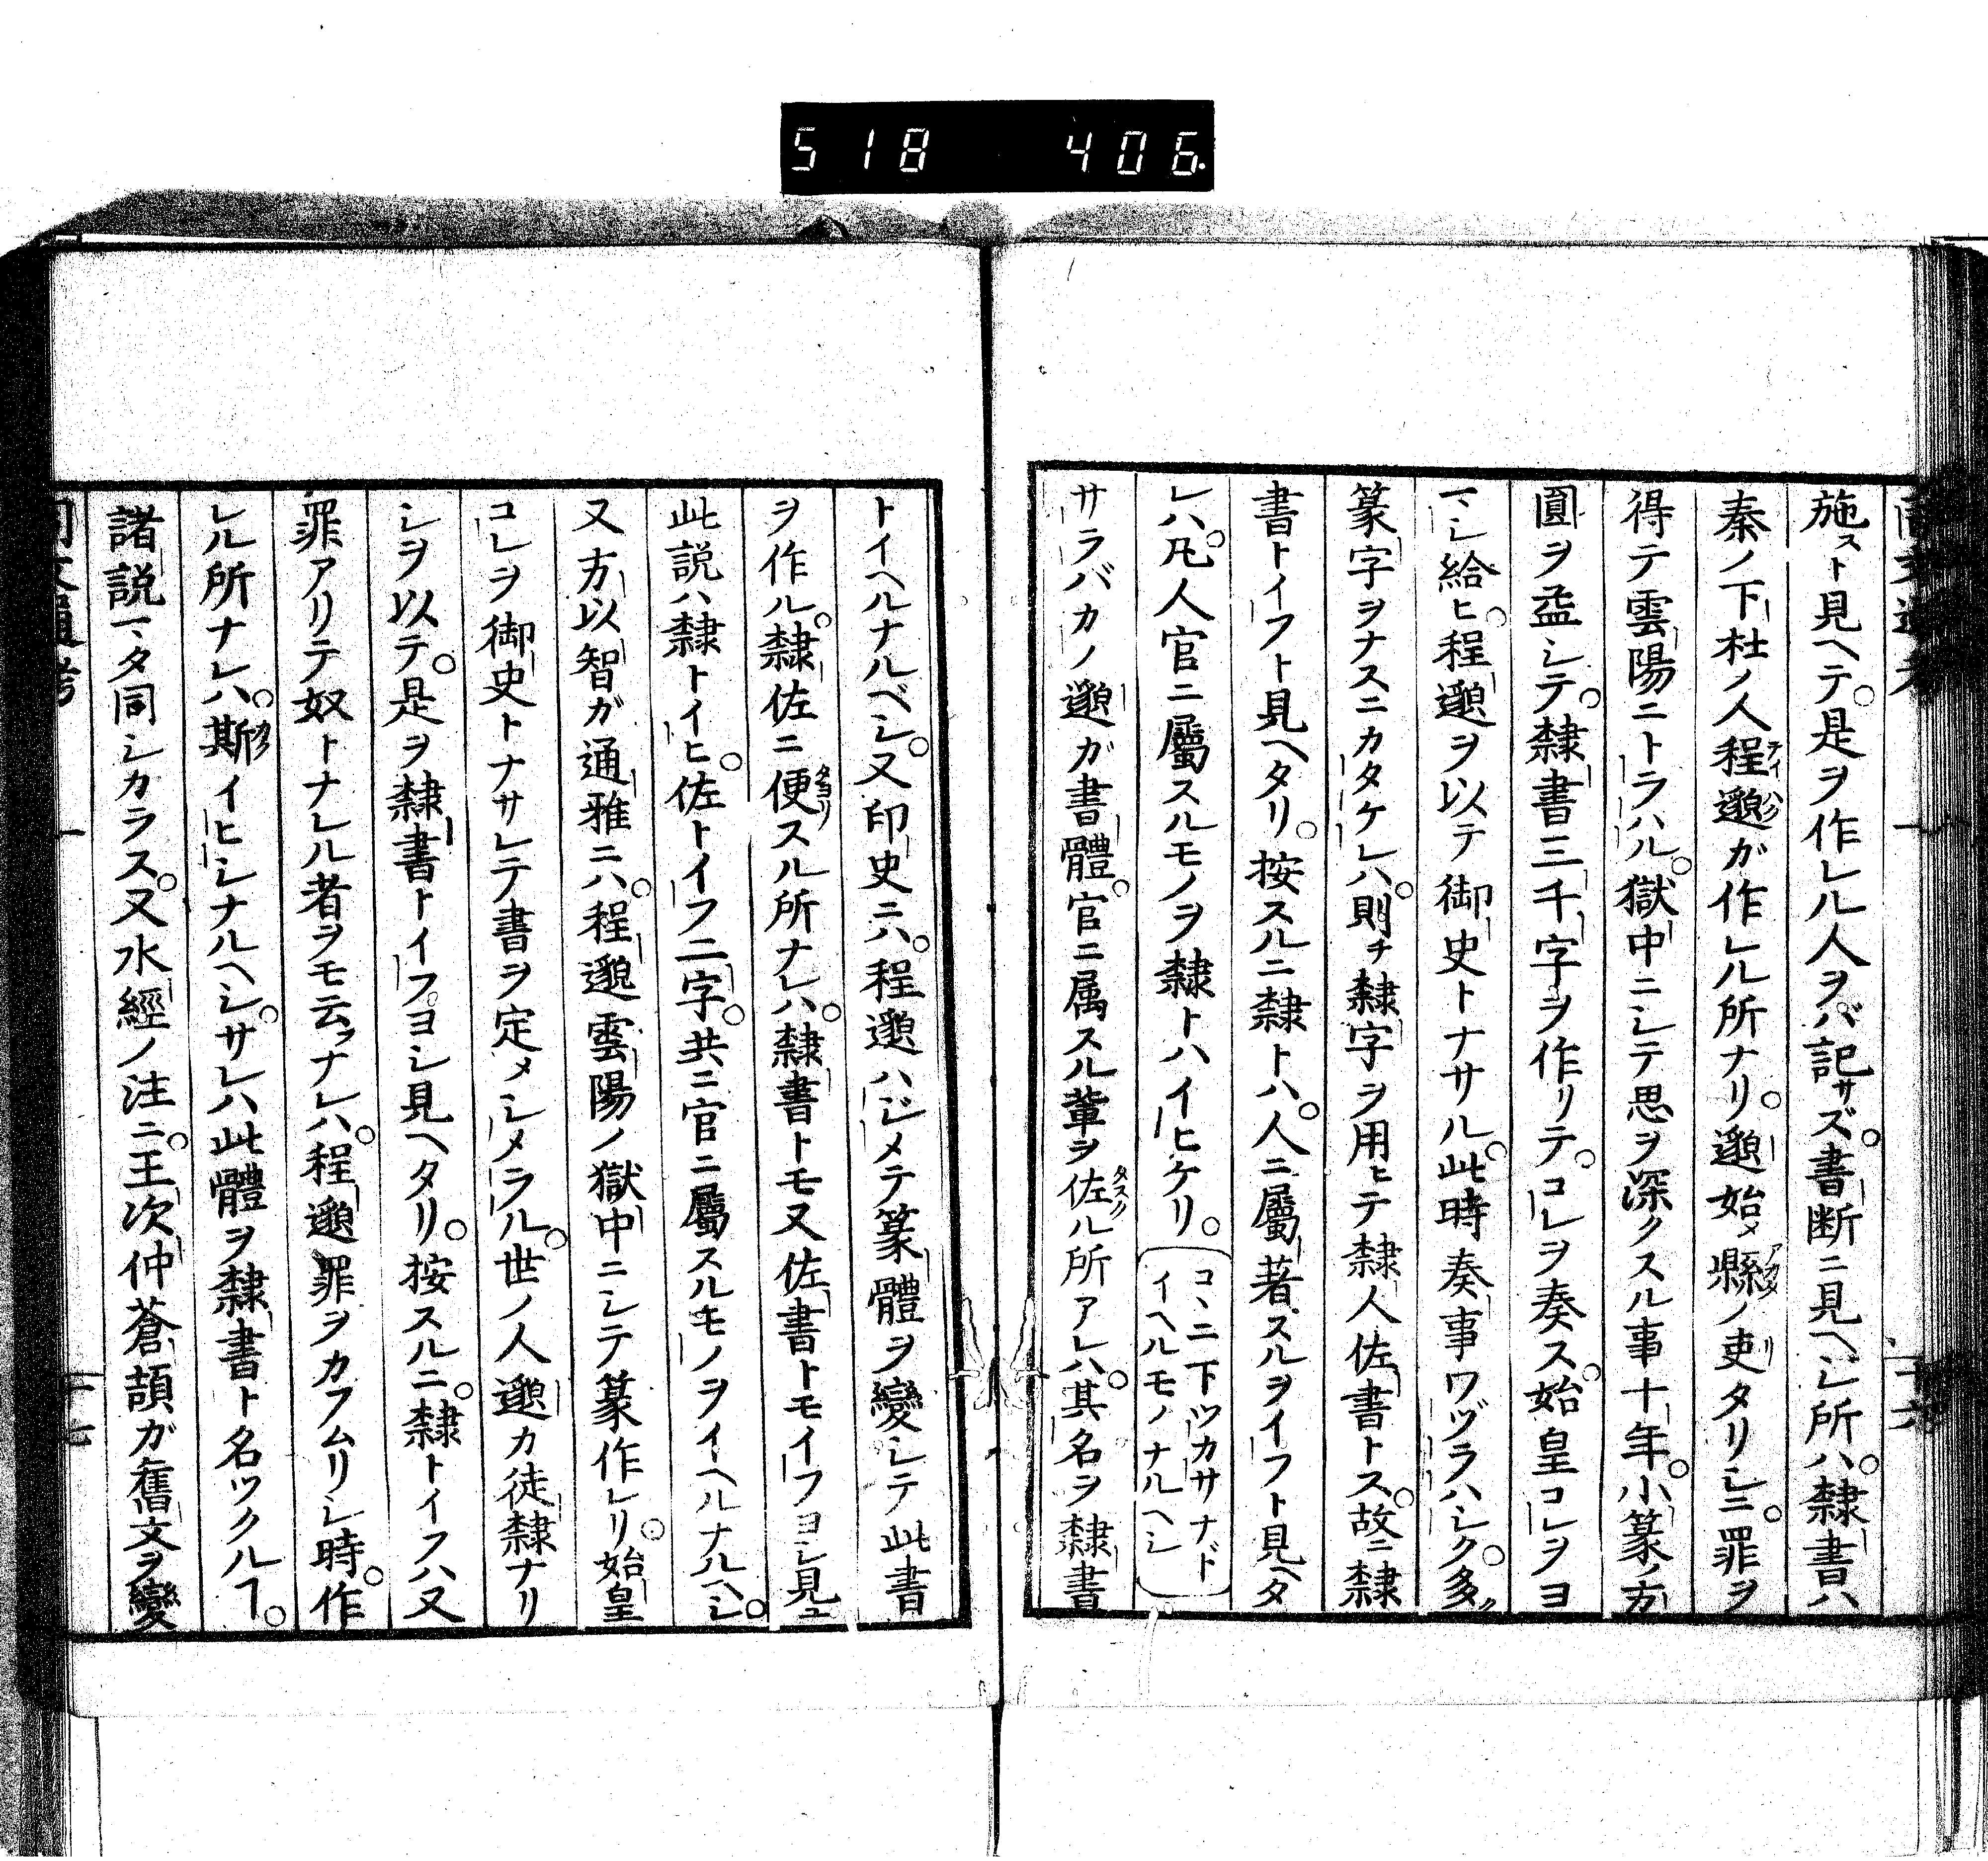 518 406
施スト見ヘテ。是ヲ作レル人ヲバ記サズ。書断ニ見ヘシ所ハ。隸書ハ
秦ノ下杜ノ人程邈ガ作レル所ナリ。邈始メ縣ノ吏タリシニ。罪ヲ
得テ雲陽ニトラハル。獄中ニシテ思ヲ深クスル事十年。小篆ノ方
圓ヲ益シテ。隸書三千字ヲ作リテ。コレヲ奏ス。始皇コレヲヨ
ミシ給ヒ。程邈ヲ以テ御史トナサル。此時奏事ワヅラハシク。多ク
篆字ヲナスニカタケレハ。則チ隸字ヲ用ヒテ隸人佐書トス。故ニ隸
書トイフト見ヘタリ。按スルニ隸トハ。人ニ屬著スルヲイフト見ヘタ
レハ。凡人官ニ屬スルモノヲ隸トハイヒケリ。
コヽニ下ツカサナド
イヘルモノナルヘシ
サラバカノ邈ガ書體。官ニ属スル輩ヲ佐ル所アレハ。其名ヲ隸書
トイヘルナルベシ。又印史ニハ。程邈ハジメテ篆體ヲ變シテ此書
ヲ作ル。隸佐ニ便スル所ナレハ。隸書トモ又佐書トモイフヨシ見ユ
此説ハ隸トイヒ。佐トイフ二字。共ニ官ニ屬スルモノヲイヘルナルヘシ。
又方以智ガ通雅ニハ。程邈雲陽ノ獄中ニシテ篆作レリ。始皇
コレヲ御史トナサレテ書ヲ定メシメラル。世ノ人邈カ徒隸ナリ
シヲ以テ。是ヲ隸書トイフヨシ見ヘタリ。按スルニ。隸トイフハ又
罪アリテ奴トナレル者ヲモ云フナレハ。程邈罪ヲカフムリシ時。作
レル所ナレハ。斯イヒシナルヘシ。サレハ此體ヲ隸書ト名ツクルヿ。
諸説マタ同シカラス。又水經ノ注ニ。王次仲蒼頡ガ舊文ヲ變
十七